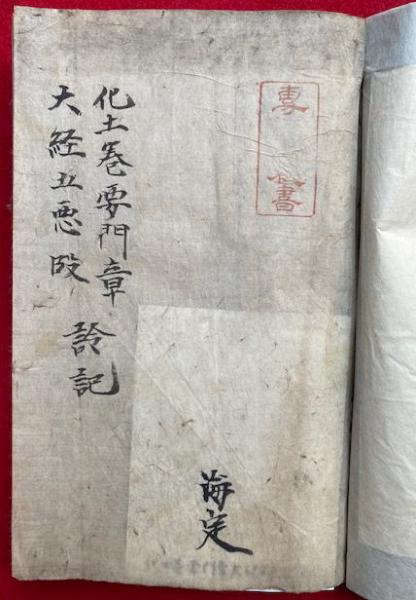 專
書
海定
化土巻要門章
大経五悪段
聆記